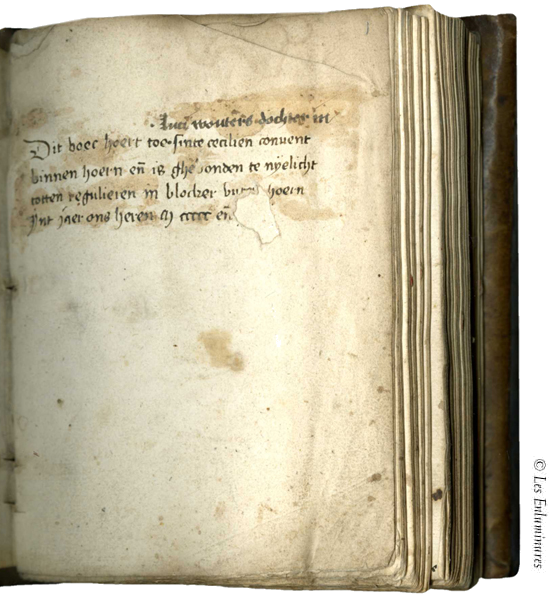 · Luci wouters dochter in
Dit boec hoert toe · sinte cecilien convent
binnen hoern eñ is ghesonden te nyelicht
totten regulieren in blocker hoern
Int jaer ons heren M ccccc eñ
© Les Enluminures